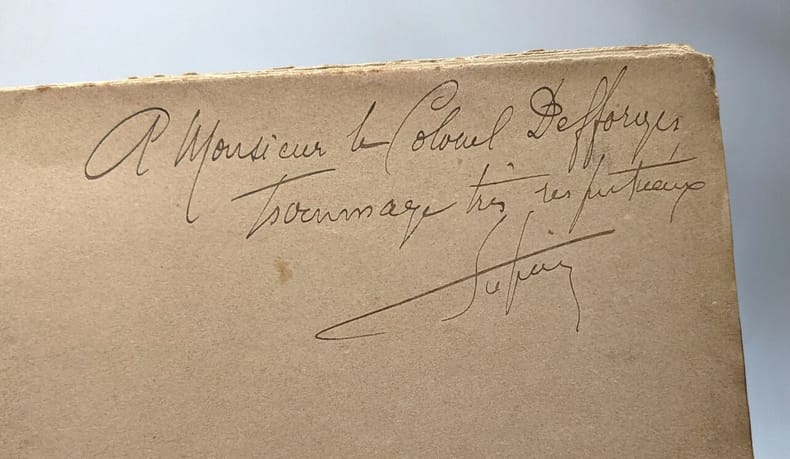 A Monsieur le Colonel Defforges,
hommage très respectueux